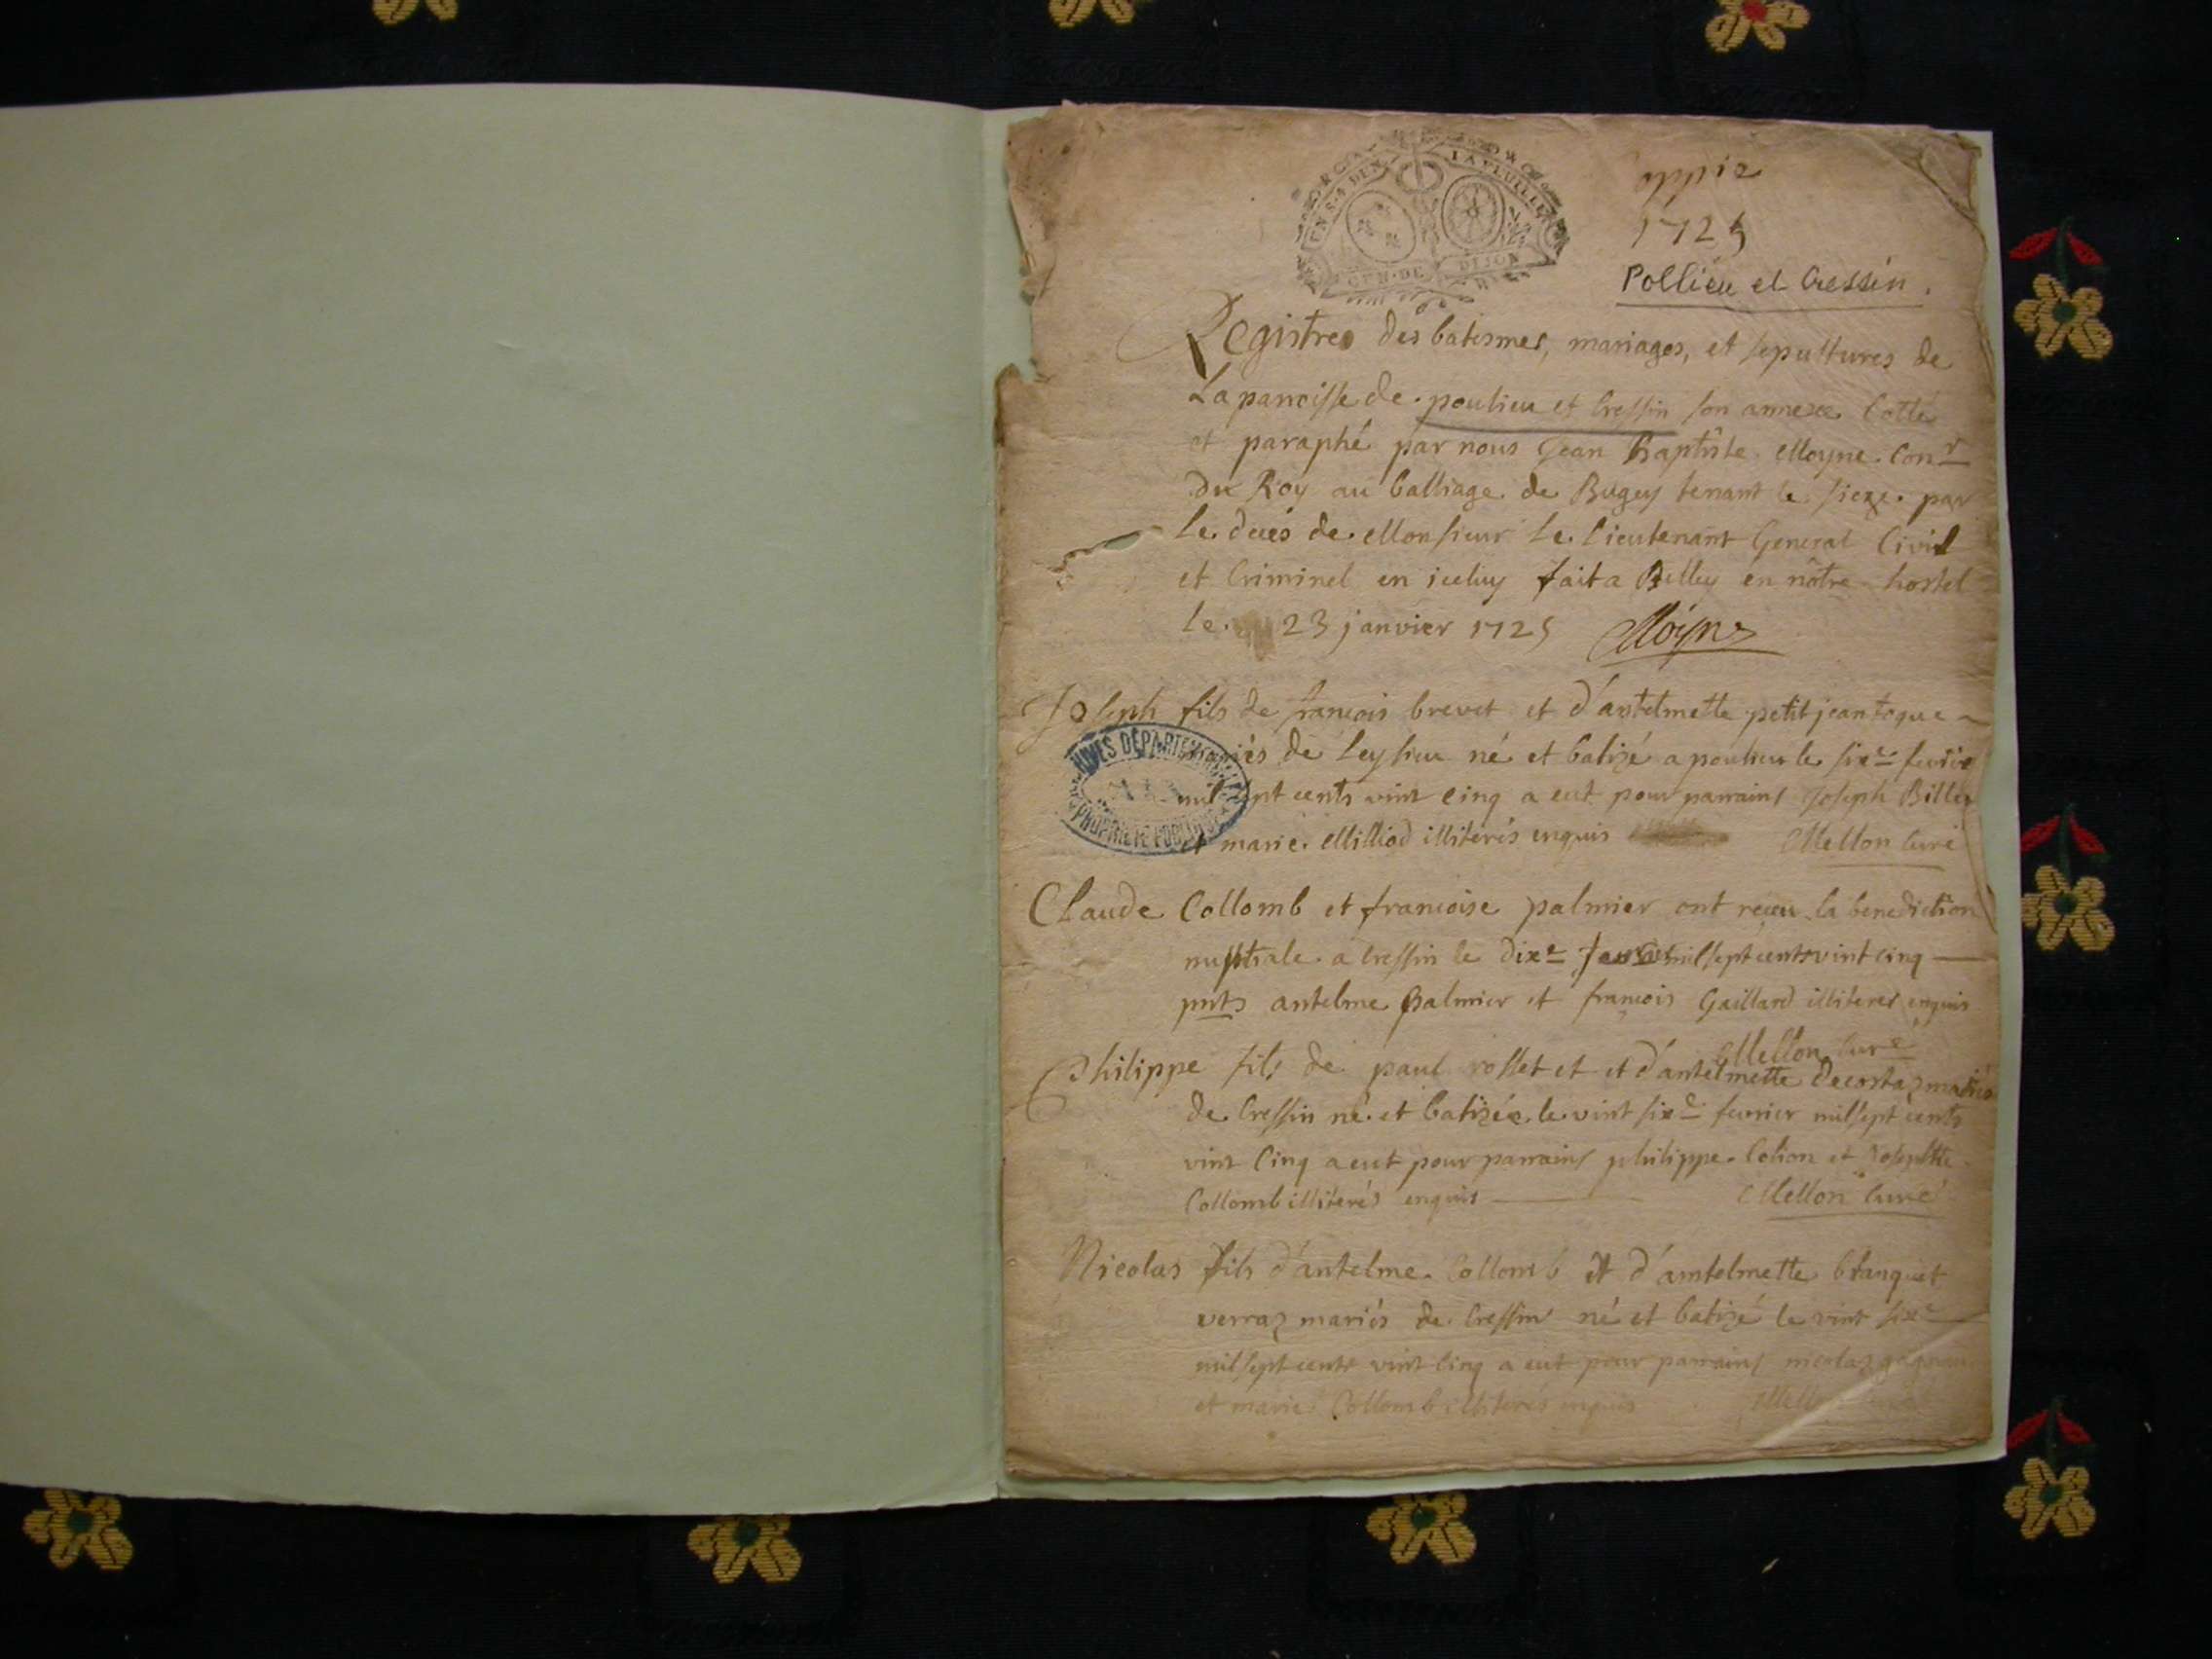 UN S. 4 DEN LA FEUILLE
GEN. DE DIJON
Coppie
1725
Pollieu et Cressin.
Registres des batismes, mariages, et sepultures de
La parroisse de poulieu et Cressin son annexe Cotté
et paraphé par nous Jean Baptiste Moyne Conr
Du Roy au balliage de Bugey tenant le sieze par
le decés de Monsieur le lieutenant General Civil
et Criminel en iceluy fait a Belley en nôtre hostel
le 23 janvier 1725 Moyne
Joseph fils de francois brevet et d'antelmette petit jean toque
mariés de Leysieu né et batizé a poulieu le sixe fevrie
mil sept cents vint cinq a eut pour parrains Joseph Billiez
et marie Milliod illiterés enquis Mellon Curé
ARCHIVES DÉPARTEMENTALES
AIN
PROPRIÉTÉ PUBLIQUE
Claude Collomb et francoise palmier ont receu la benediction
nuptiale a Cressin le dixe fevrier mil sept cents vint cinq
pnts antelme palmier et françois Gaillard illiteres enquis
Mellon Curé
Philippe fils de paul rosset et et d'antelmette decostaz mariés
de Cressin né et batizée le vint sixe fevrier mil sept cents
vint Cinq a eut pour parrains philippe Cotion et Josephte
Collomb illiterés enquis Mellon Curé
Nicolas fils d'antelme Collomb et d'antelmette blanquet
verraz mariés de Cressin né et batizé le vint sixe
mil sept cents vint Cinq a eut pour parrains nicolaz
et marie Collomb illiterés enquis Mellon Curé